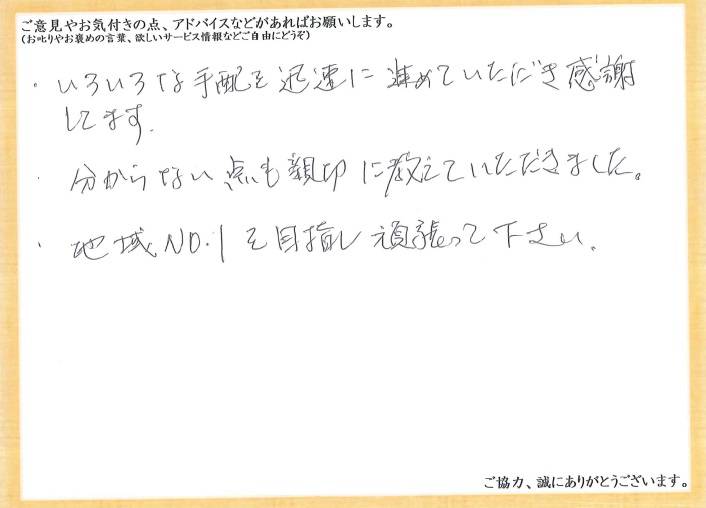 ご意見やお気付きの点、アドバイスなどがあればお願いします。
(お叱りやお褒めの言葉、欲しいサービス情報などご自由にどうぞ)
・いろいろな手配を迅速に進めていただき感謝
してます.
・分からない点も親切に教えていただきました。
・地域NO.1を目指し頑張って下さい.
ご協力、誠にありがとうございます。